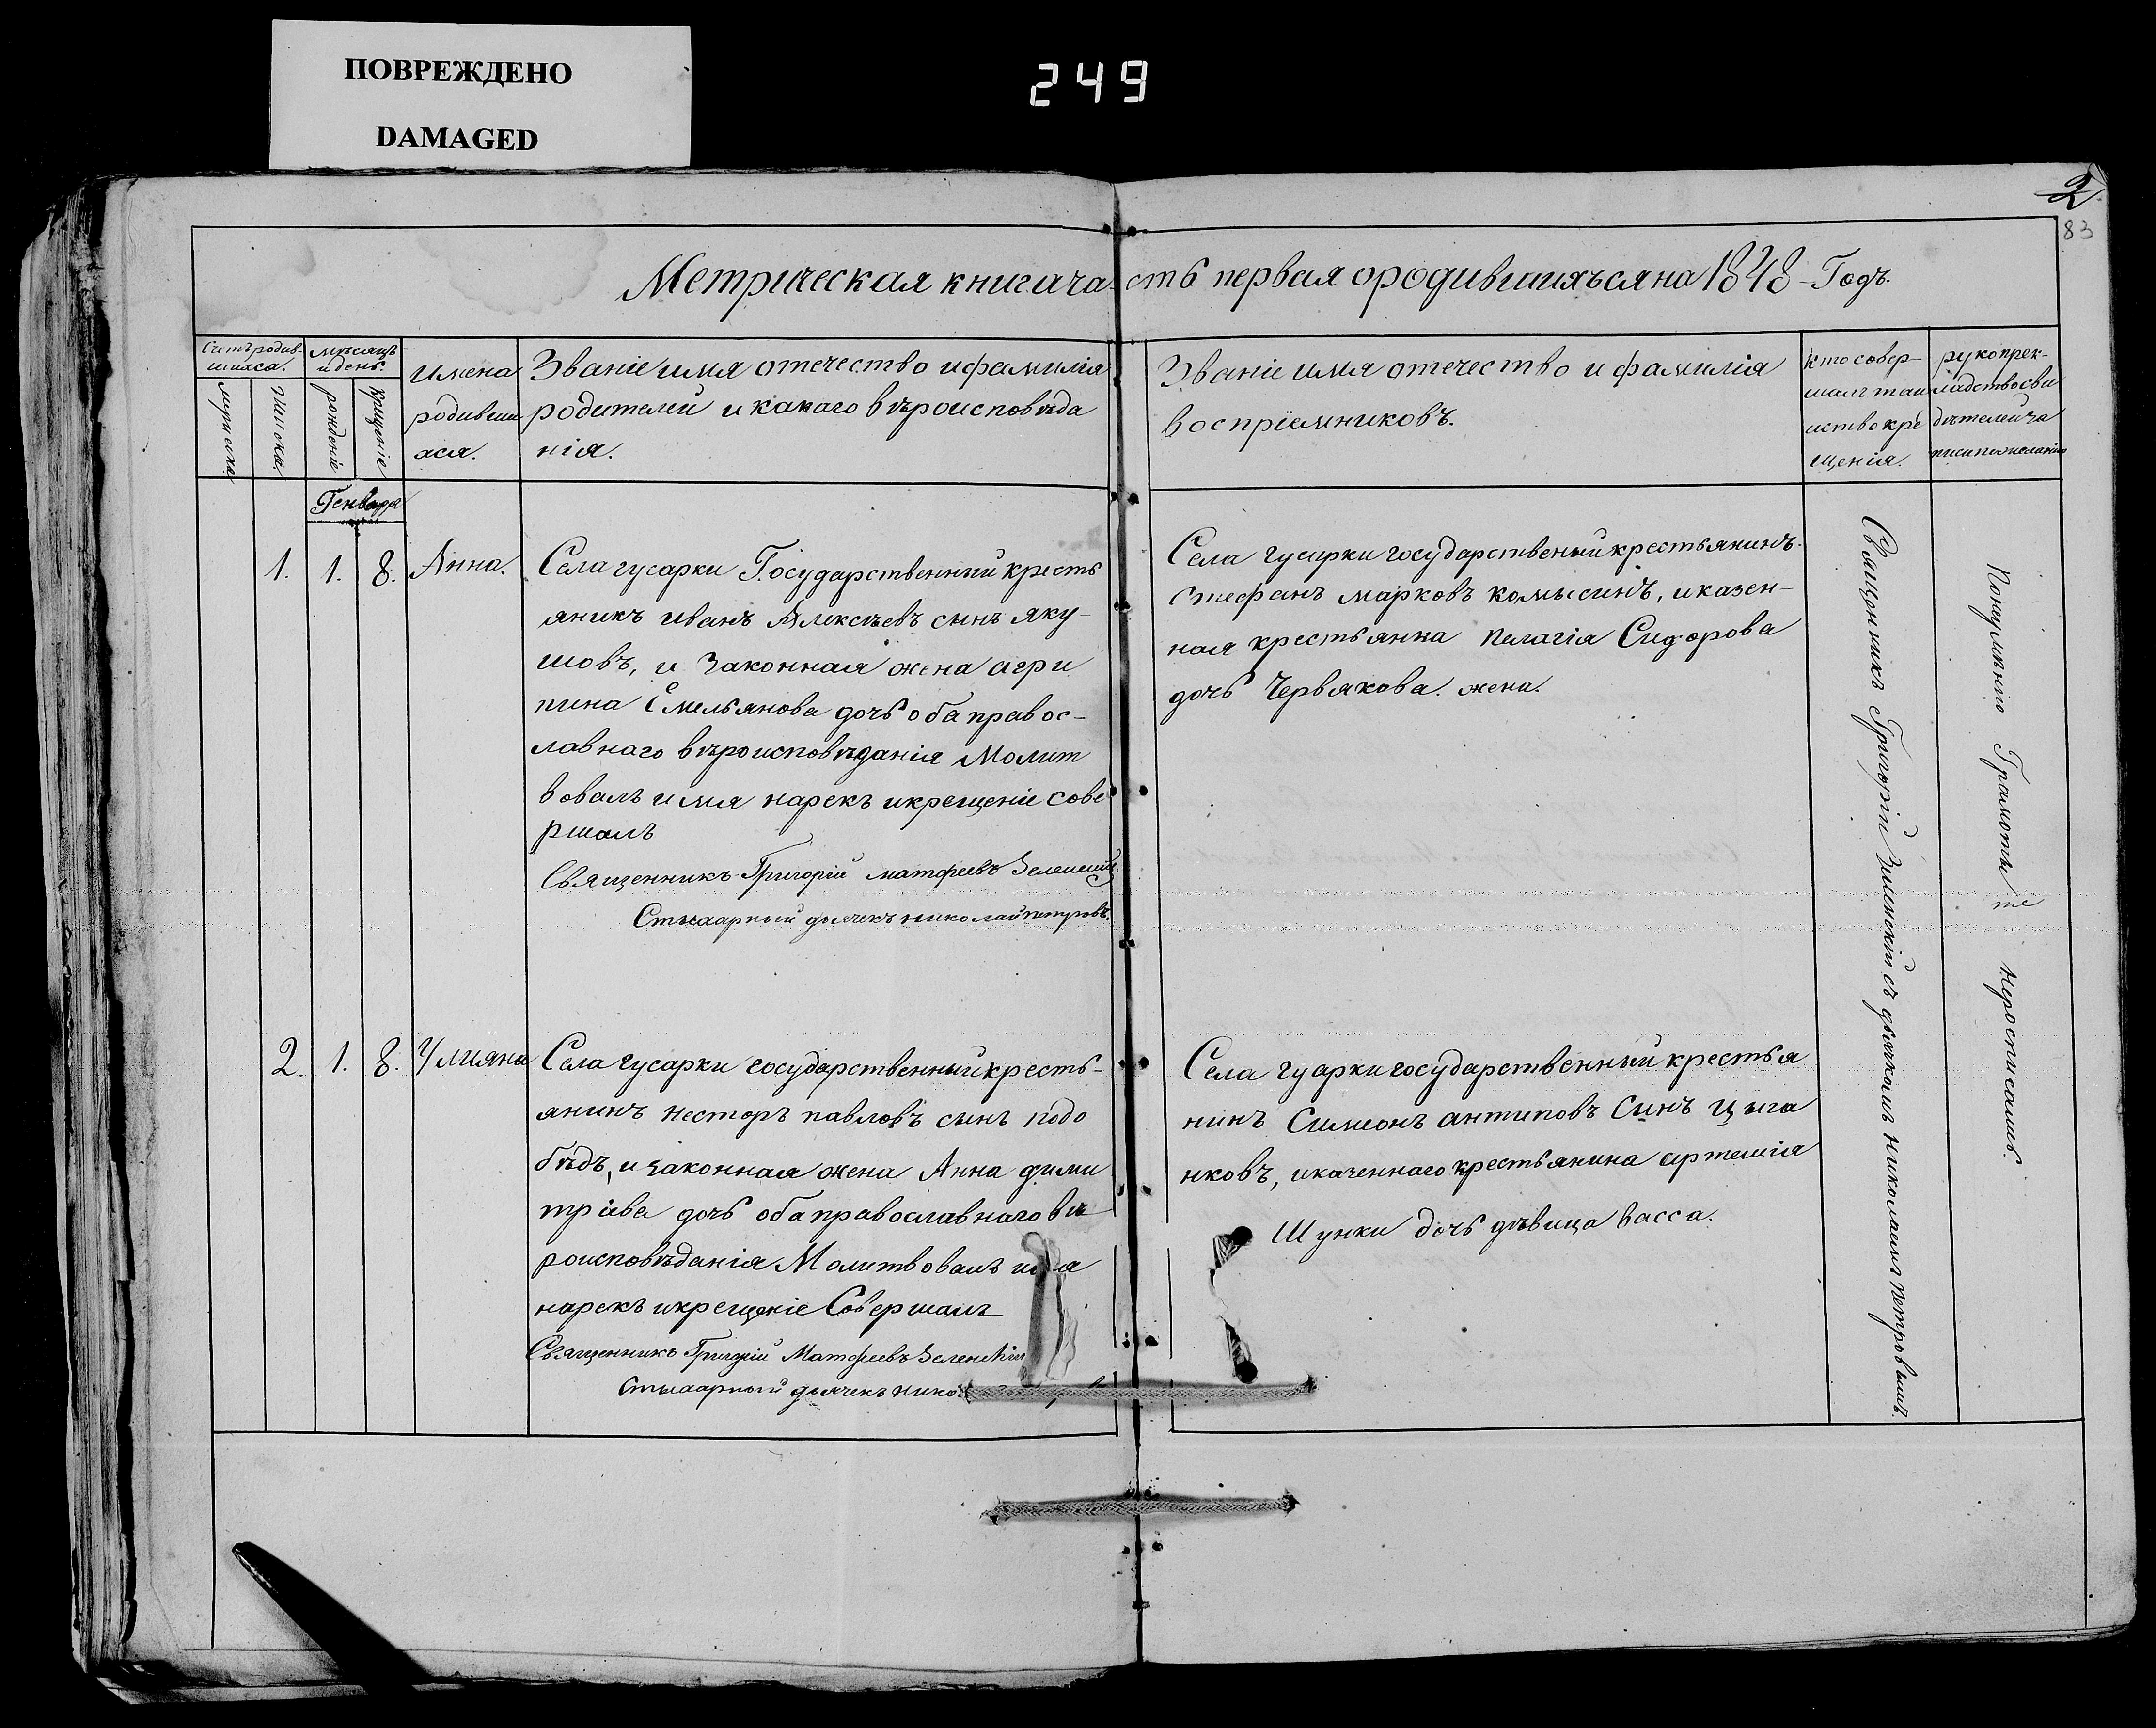 ПОВРЕЖДЕНО
DAMAGED
249
2
83
Метрическая книга часть первая ородившихъся на 1848 Годъ.
Счетъ родив-
шихся.
мужеска
женска
мѣсяцъ
и день.
рожденіе
крещеніе
имена
родивши
хся.
Званіе имя отечество и фамилія
родителей и какаго вѣроисповѣда
нія.
Званіе имя отечество и фамилія
воспріемниковъ.
кто совер-
шалъ таи
нство кре
щенія.
рукоприк-
ладство сви
дѣтелей за
писи по желанію
Генваря
1. 1. 8. Анна.
Села гусарки Государственный кресть
янинъ иванъ Алексѣевъ сынъ яку-
шовъ, и законная жена агри
пина Емельянова дочь оба правос-
лавнаго вѣроисповѣданія Молит
вовалъ имя нарекъ и крещеніе сове
ршалъ
Священникъ Григорій матфеевъ Зеленскій
Стихарный дьячекъ николай петровъ.
Села гусарки государственый крестьянинъ
стефанъ марковъ комысинъ, и казен-
ная крестьянка пелагія Сидорова
дочь Червякова. жена.
2. 1. 8. Улияна
Села гусарки государственный кресть-
янинъ несторъ павловъ сынъ подо
бѣдъ, и законная жена Анна дими
тріева дочь оба православнаго вѣ
роисповѣданія Молитвовалъ имя
нарекъ и крещеніе Совершалъ
Священникъ Григорій Матфеевъ Зеленскій
Стихарный дьячекъ нико
Села гуарки государственный крестья
нинъ Симеонъ антиповъ Синъ цыга
нковъ, и казеннаго крестьянина артемія
Шунки дочь дѣвица васса.
Священникъ Григорій Зиленскій съ дьячкомъ николаемъ петровымъ
Понеумѣнію Грамотѣ не неросписались